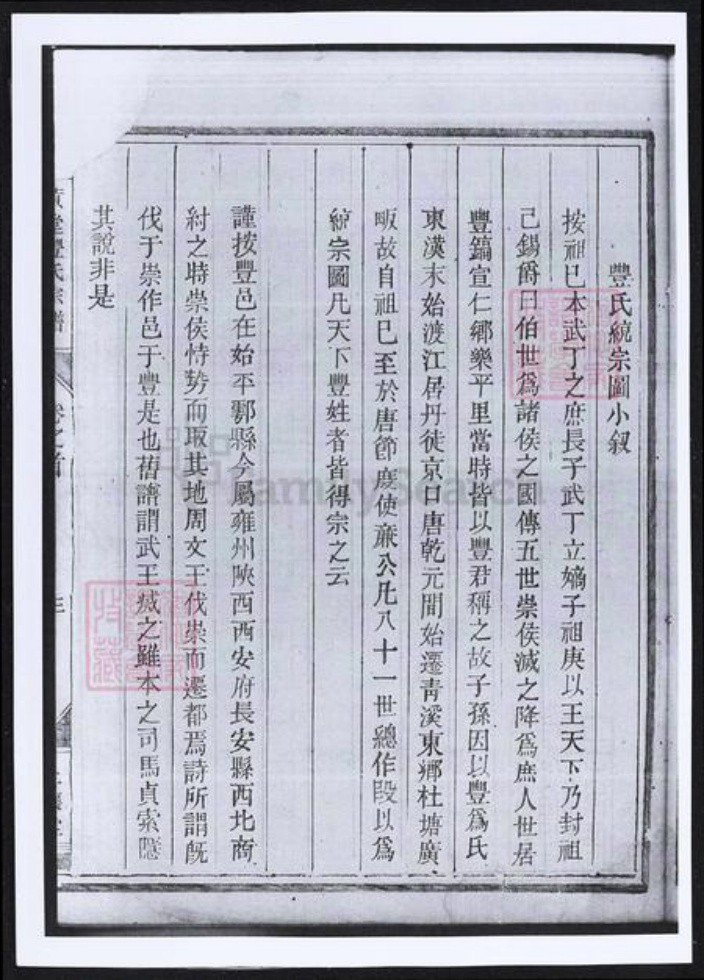 豐氏統宗圖小叙
按祖巳本武丁之庶長子武丁立嫡子祖庚以王天下乃封祖
己錫爵曰伯世爲諸侯之國傳五世崇侯滅之降爲庶人世居
豐鎬宣仁鄉樂平里當時皆以豐君稱之故子孫因以豐爲氏
東漢末始渡江居丹徒京口唐乾元間始遷青溪東鄉杜塘廣
畈故自祖巳至於唐節度使 公凡八十一世總作段以爲
統宗圖凡天下豐姓者皆得宗之云
謹按豐邑在始平鄠縣今屬雍州陝西西安府長安縣西北商
紂之時崇侯恃勢而取其地周文王伐崇而遷都焉詩所謂旣
伐于崇作邑于豐是也舊譜謂武王滅之雖本之司馬貞索隱
其說非是
堂豐氏宗譜
卷之首
FamilySearch